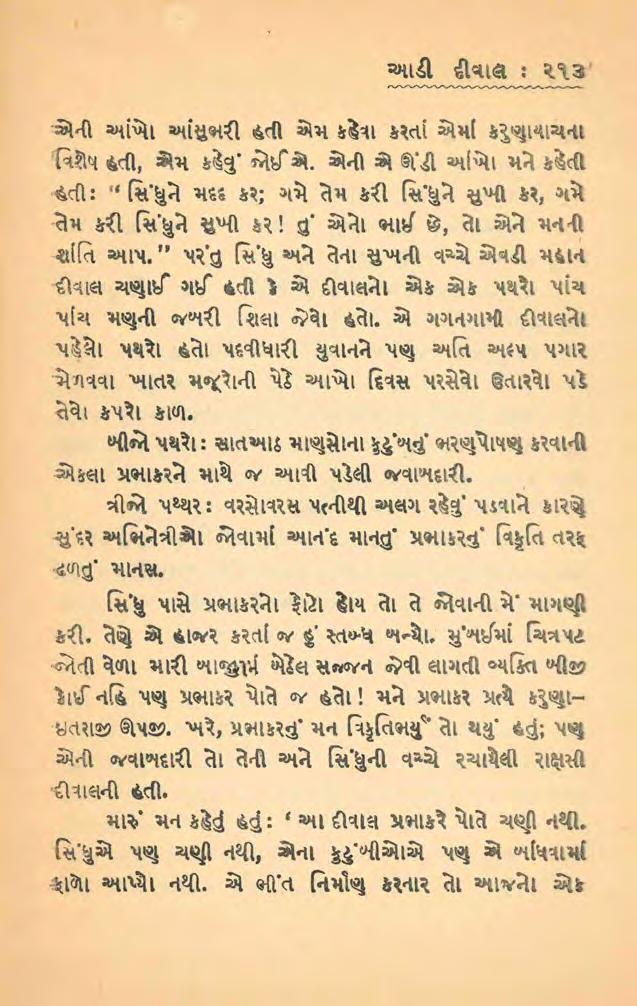 આડી દીવાલ : ૨૧૩
એની આંખો આંસુભરી હતી એમ કહેવા કરતાં એમાં કરુણાયાચના
વિશેષ હતી, એમ કહેવું જોઈએ. એની એ ઊંડી આંખો મને કહેતી
હતી: “ સિંધુને મદદ કર; ગમે તેમ કરી સિંધુને સુખી કર, ગમે
તેમ કરી સિંધુને સુખી કર! તું એનો ભાઈ છે, તો એને મનની
શાંતિ આપ.” પરંતુ સિંધુ અને તેના સુખની વચ્ચે એવડી મહાન
દીવાલ ચણાઈ ગઈ હતી કે એ દીવાલનો એક એક પથરો પાંચ
પાંચ મણની જબરી શિલા જેવો હતો. એ ગગનગામી દીવાલનો
પહેલો પથરો હતો પદવીધારી યુવાનને પણ અતિ અલ્પ પગાર
મેળવવા ખાતર મજૂરોની પેઠે આખો દિવસ પરસેવો ઉતારવો પડે
તેવો કપરો કાળ.
બીજો પથરો: સાતઆઠ માણસોના કુટુંબનું ભરણપોષણ કરવાની
એકલા પ્રભાકરને માથે જ આવી પડેલી જવાબદારી.
ત્રીજો પથ્થર: વરસોવરસ પત્નીથી અલગ રહેવું પડવાને કારણે
સુંદર અભિનેત્રીઓ જોવામાં આનંદ માનતું પ્રભાકરનું વિકૃતિ તરફ
ઢળતું માનસ.
સિંધુ પાસે પ્રભાકરનો ફોટો હોય તો તે જોવાની મેં માગણી
કરી. તેણે એ હાજર કરતાં જ હું સ્તબ્ધ બન્યો. મુંબઈમાં ચિત્રપટ
જોતી વેળા મારી બાજુમાં બેઠેલ સજ્જન જેવી લાગતી વ્યક્તિ બીજી
કોઈ નહિ પણ પ્રભાકર પોતે જ હતો! મને પ્રભાકર પ્રત્યે કરુણા–
ઇતરાજી ઊપજી. ખરે, પ્રભાકરનું મન વિકૃતિભર્યું તો થયું હતું; પણ
એની જવાબદારી તો તેની અને સિંધુની વચ્ચે રચાયેલી રાક્ષસી
દીવાલની હતી.
મારું મન કહેતું હતું: ‘ આ દીવાલ પ્રભાકરે પોતે ચણી નથી.
સિંધુએ પણ ચણી નથી, એના કુટુંબીઓએ પણ એ બાંધવામાં
ફાળો આપ્યો નથી. એ ભીંત નિર્માણ કરનાર તો આજનો એક